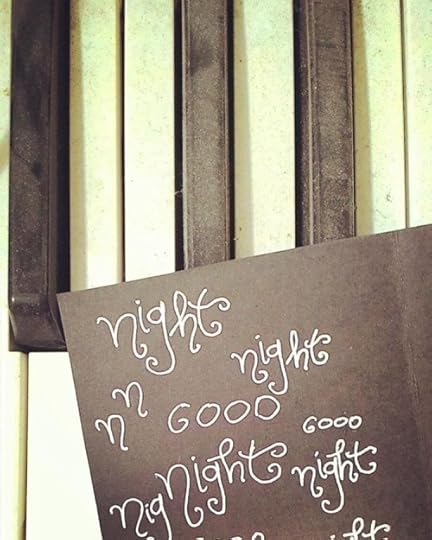 night
night
n
n GOOO GOOO
Night night
nig
night